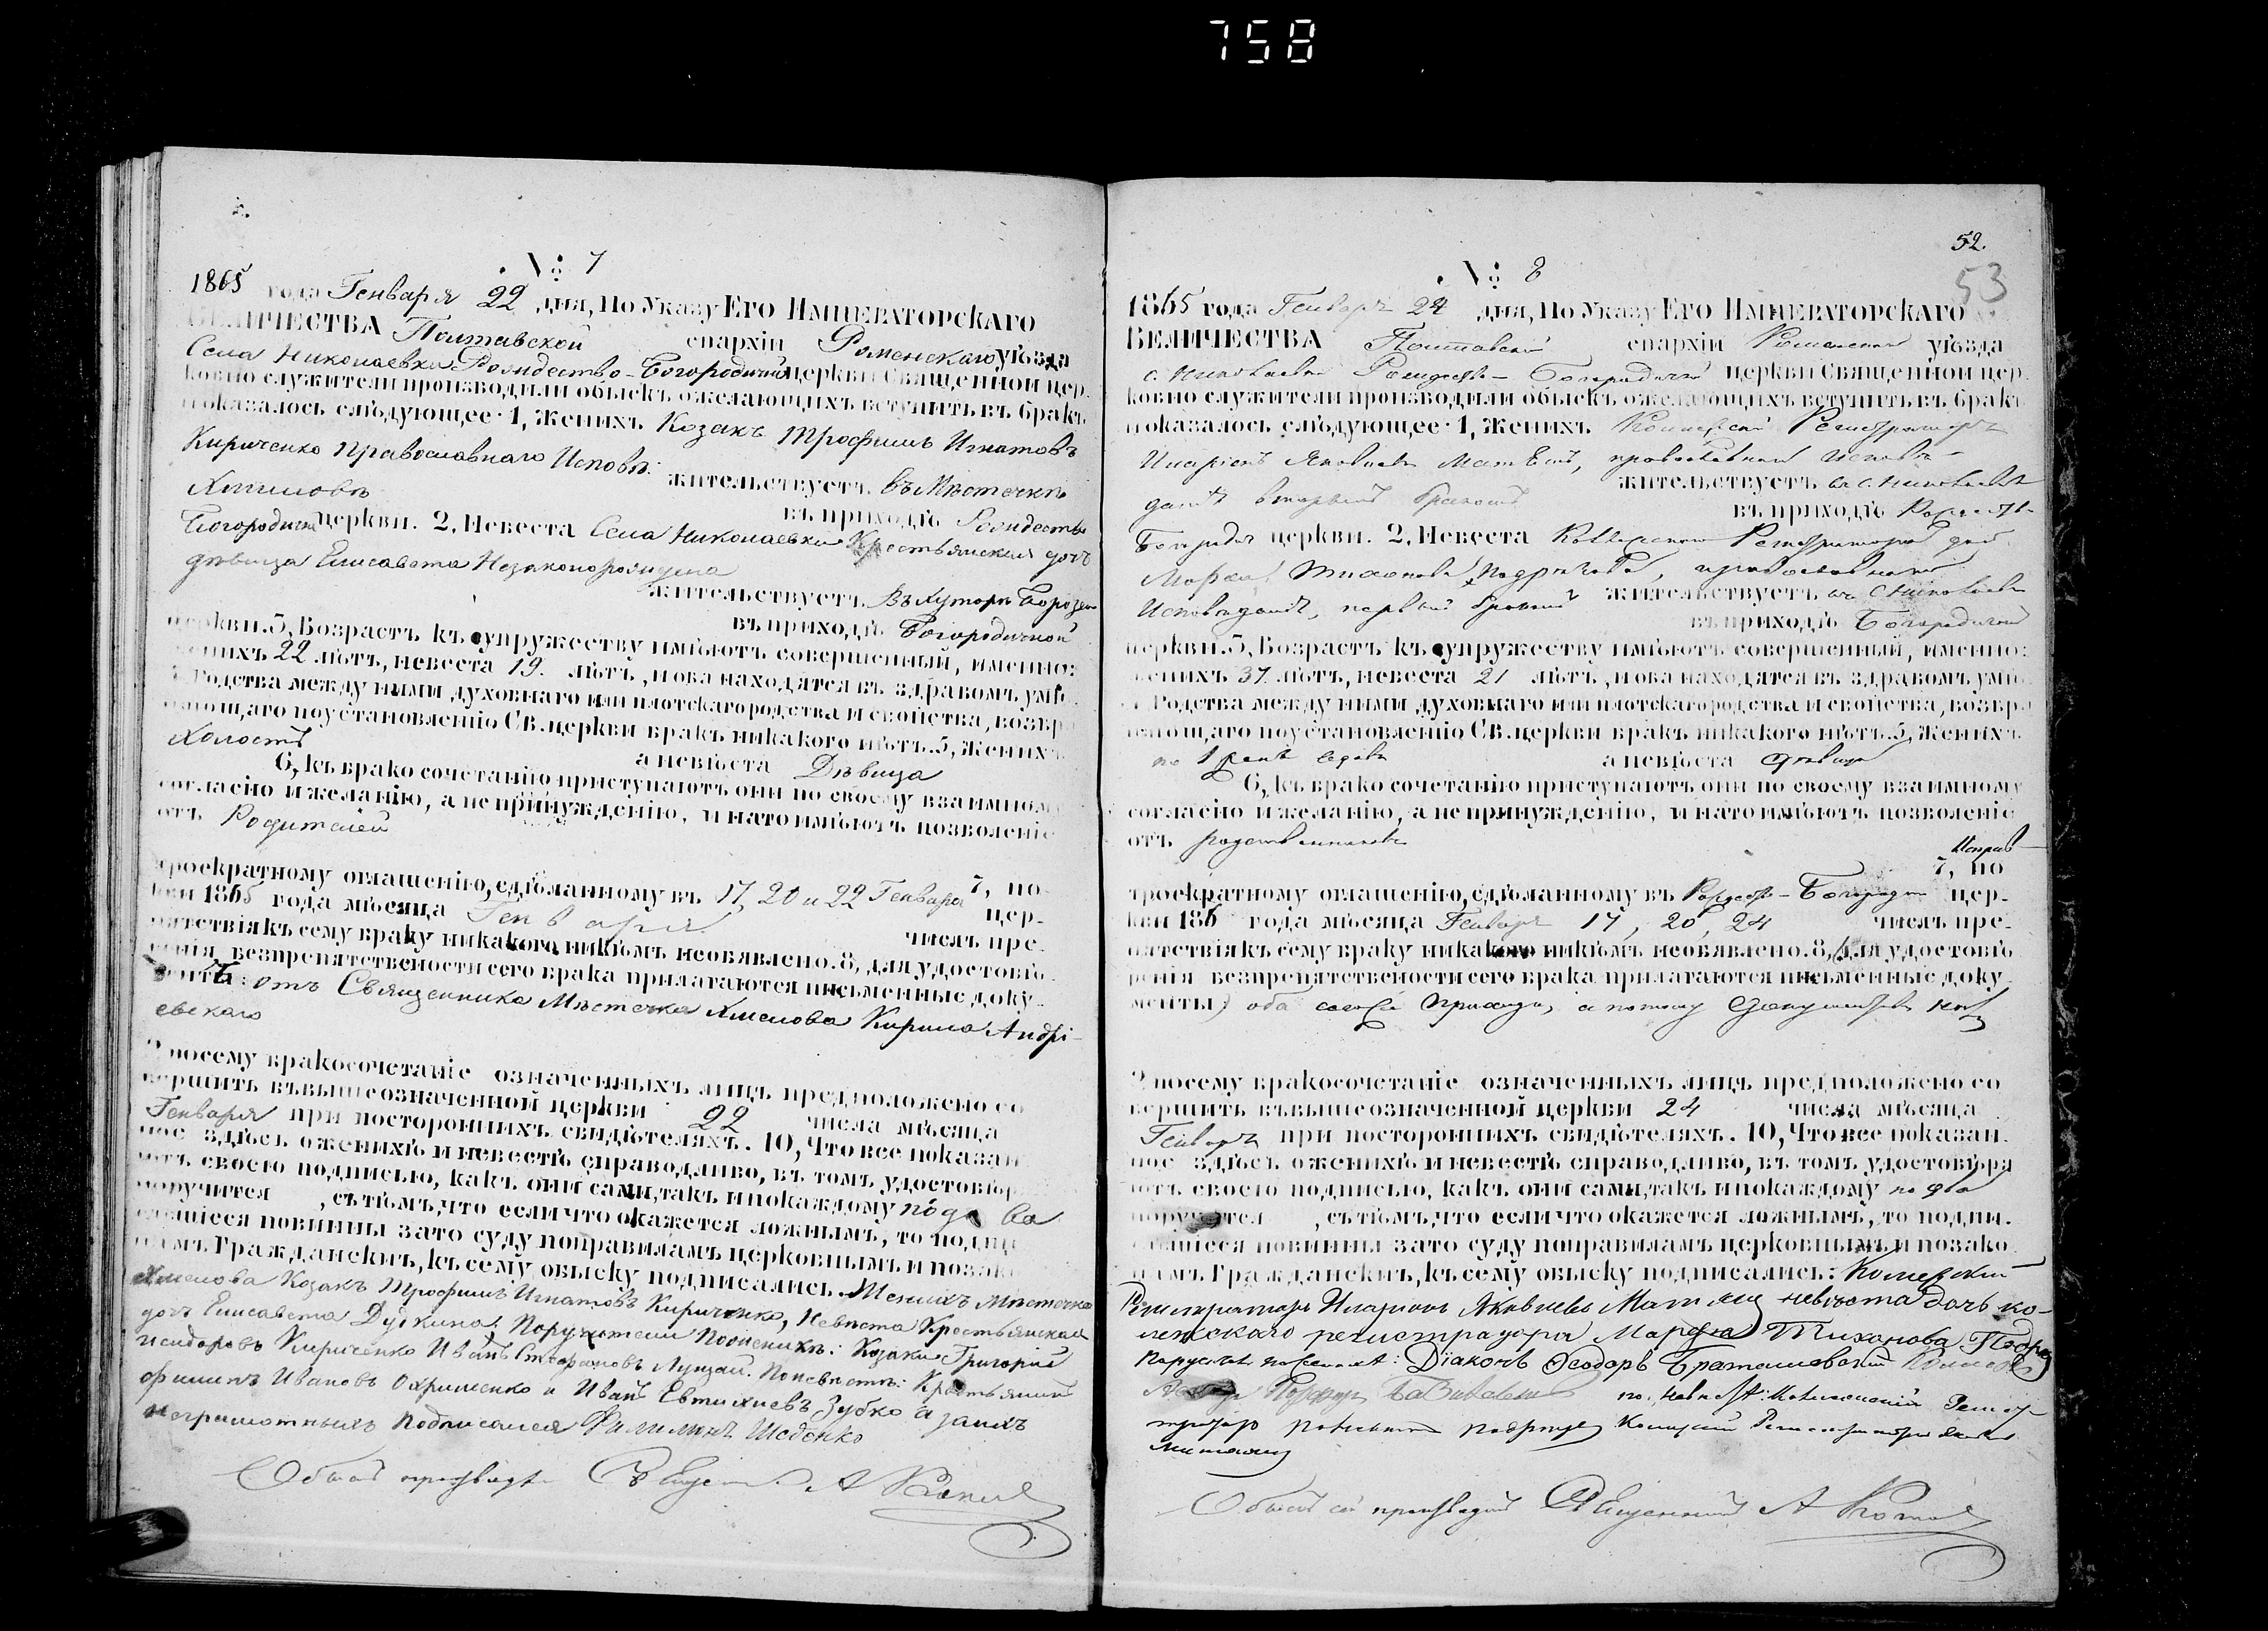 758
№ 7
1865 года Генваря 22 дня, По Указу ЕГО ИМПЕРАТОРСКАГО
ВЕЛИЧЕСТВА Полтавской епархіи Роменскаго уѣзда
Села Николаевки Рождество-Богородичной церкви Священной цер-
ковно служители производили обыскъ о желающихъ вступить въ бракъ
и оказалось слѣдующее: 1, Женихъ Козакъ Трофимъ Игнатовъ
Кириченко православнаго Исповѣ: жительствуетъ въ Мѣстечкѣ
Хмѣловѣ въ приходѣ Рождество
Богородичн церкви. 2, Невеста Села Николаевки Крестьянская дочь
дѣвица Елисавета Незаконорождена
жительствуетъ въ Хуторѣ
въ приходѣ Богородичной
церкви. 3, Возрастъ къ супружеству имѣютъ совершенный, именно:
женихъ 22 лѣтъ, невеста 19. лѣтъ, и оба находятся въ здравомъ умѣ.
4, Родства между ними духовнаго или плотскаго родства и свойства, возбра
няющаго по установленію Св. церкви бракъ никакого нѣтъ. 5, Женихъ
Холостъ а невѣста Дѣвица
6, къ брако сочетанію приступаютъ они по своему взаимному
согласію и желанію, а не принужденію, и на то имѣютъ позволеніе
отъ Родителей
7, по
троекратному оглашенію, сдѣланному въ 17, 20 и 22 Генваря цер-
кви 1865 года мѣсяца Генваря числъ пре-
пятствія къ сему браку никакого никѣмъ необявлено. 8, для удостовѣ-
ренія безпрепятствености сего брака прилагаются письменные доку-
менты: отъ Священника Мѣстечка Хмелова Кирила Андрі-
евскаго
9 посему бракосочетаніе означенныхъ лицъ предположено со
вершить въ вышеозначенной церкви 22 числа мѣсяца
Генваря при постороннихъ свидѣтеляхъ. 10, Что все показан
ное здѣсь о женихѣ и невестѣ справодливо, въ томъ удостовѣр
ютъ своею подписью, какъ они сами, такъ и по каждому по два
поручится , съ тѣмъ, что если что окажется ложнымъ, то подпи
савшіеся повинны за то суду по правиламъ церковнымъ и по зако
намъ Гражданскихъ, къ сему обыску подписались. Женихъ Мѣстечка
Хмелова Козакъ Трофимъ Игнатовъ Кириченко, Невѣста Крестьянская
дочь Елисавета Дудкина, Поручители По женихѣ: Козаки Григорій
Исидоровъ Кириченко Иванъ Стефановъ Лунзай. По невѣстѣ: Крестьянинъ
Ивановъ Охрименко и Иванъ Евтихиевъ Зубко а за ихъ
неграмотныхъ подписался Филимонъ Шеденко
Обыскъ производилъ Священ. А
52.
53
№ 8
1865 года Генваря 24 дня, По Указу ЕГО ИМПЕРАТОРСКАГО
ВЕЛИЧЕСТВА Полтавской епархіи Роменскаго уѣзда
с. Николаевки Рождество-Богородичной церкви Священной цер-
ковно служители производили обыскъ о желающихъ вступить въ бракъ
и оказалось слѣдующее: 1, Женихъ Коллежскій Регистраторъ
Иларіонъ Яковлевъ православнаго исповѣ-
данія вторымъ бракомъ жительствуетъ въ с. Николаевкѣ
въ приходѣ Рождество-
Богородич церкви. 2, Невеста Коллежскаго Регистратора дочь
Марфа Тихонова православнаго
Исповѣданія, первымъ бракомъ жительствуетъ въ с. Николаевкѣ
въ приходѣ Богородичной
церкви. 3, Возрастъ къ супружеству имѣютъ совершенный, именно:
женихъ 37 лѣтъ, невеста 21 лѣтъ, и оба находятся въ здравомъ умѣ.
4, Родства между ними духовнаго или плотскаго родства и свойства, возбра
няющаго по установленію Св. церкви бракъ никакого нѣтъ. 5, Женихъ
по 1 бракѣ вдовъ а невѣста дѣвица
6, къ брако сочетанію приступаютъ они по своему взаимному
согласію и желанію, а не принужденію, и на то имѣютъ позволеніе
отъ родственниковъ
7, по
троекратному оглашенію, сдѣланному въ Рождество-Богородич цер-
кви 186 года мѣсяца Генваря 17, 20, 24 числъ пре-
пятствія къ сему браку никакого никѣмъ необявлено. 8, для удостовѣ
ренія безпрепятствености сего брака прилагаются письменные доку-
менты) оба сего прихода, а потому документовъ нѣтъ
9 посему бракосочетаніе означенныхъ лицъ предположено со
вершить въ вышеозначенной церкви 24 числа мѣсяца
Генваря при постороннихъ свидѣтеляхъ. 10, Что все показан-
ное здѣсь о женихѣ и невестѣ справодливо, въ томъ удостовѣря
ютъ своею подписью, какъ они сами, такъ и по каждому по два
поручится , съ тѣмъ, что если что окажется ложнымъ, то подпи-
савшіеся повинны за то суду по правиламъ церковнымъ и по зако
намъ Гражданскихъ, къ сему обыску подписались: Колежский
Регистраторъ Иларионъ Яковлевъ невѣста дочь ко-
лежскаго регистратора Марфа Тихонова
по женихѣ: Діаконъ Феодоръ Браташевский
по невѣстѣ: Колежский Регис-
траторъ Колежский Регистраторъ
Обыскъ сей производилъ Священникъ А